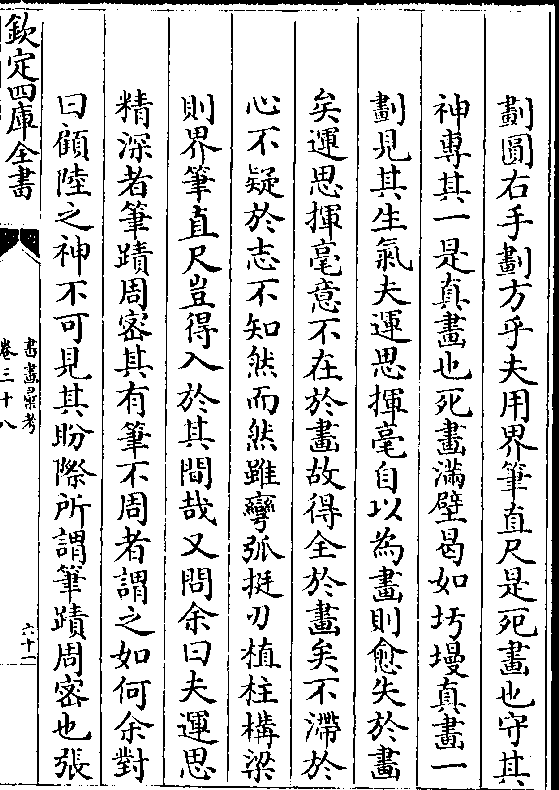 劃圓右手劃方乎夫用界筆直尺是死畫也守其
神專其一是真畫也死畫滿壁曷如圬墁真畫一
劃見其生氣夫運思揮毫自以為畫則愈失於畫
矣運思揮毫意不在於畫故得全於畫矣不滯於
心不疑於志不知然而然雖彎弧挺刃植柱構梁
則界筆直尺豈得入於其間哉又問余曰夫運思
精深者筆蹟周密其有筆不周者謂之如何余對
曰顧陸之神不可見其盼際所謂筆蹟周密也張
欽定四庫全書
書畫彙考
卷三十八
六十二